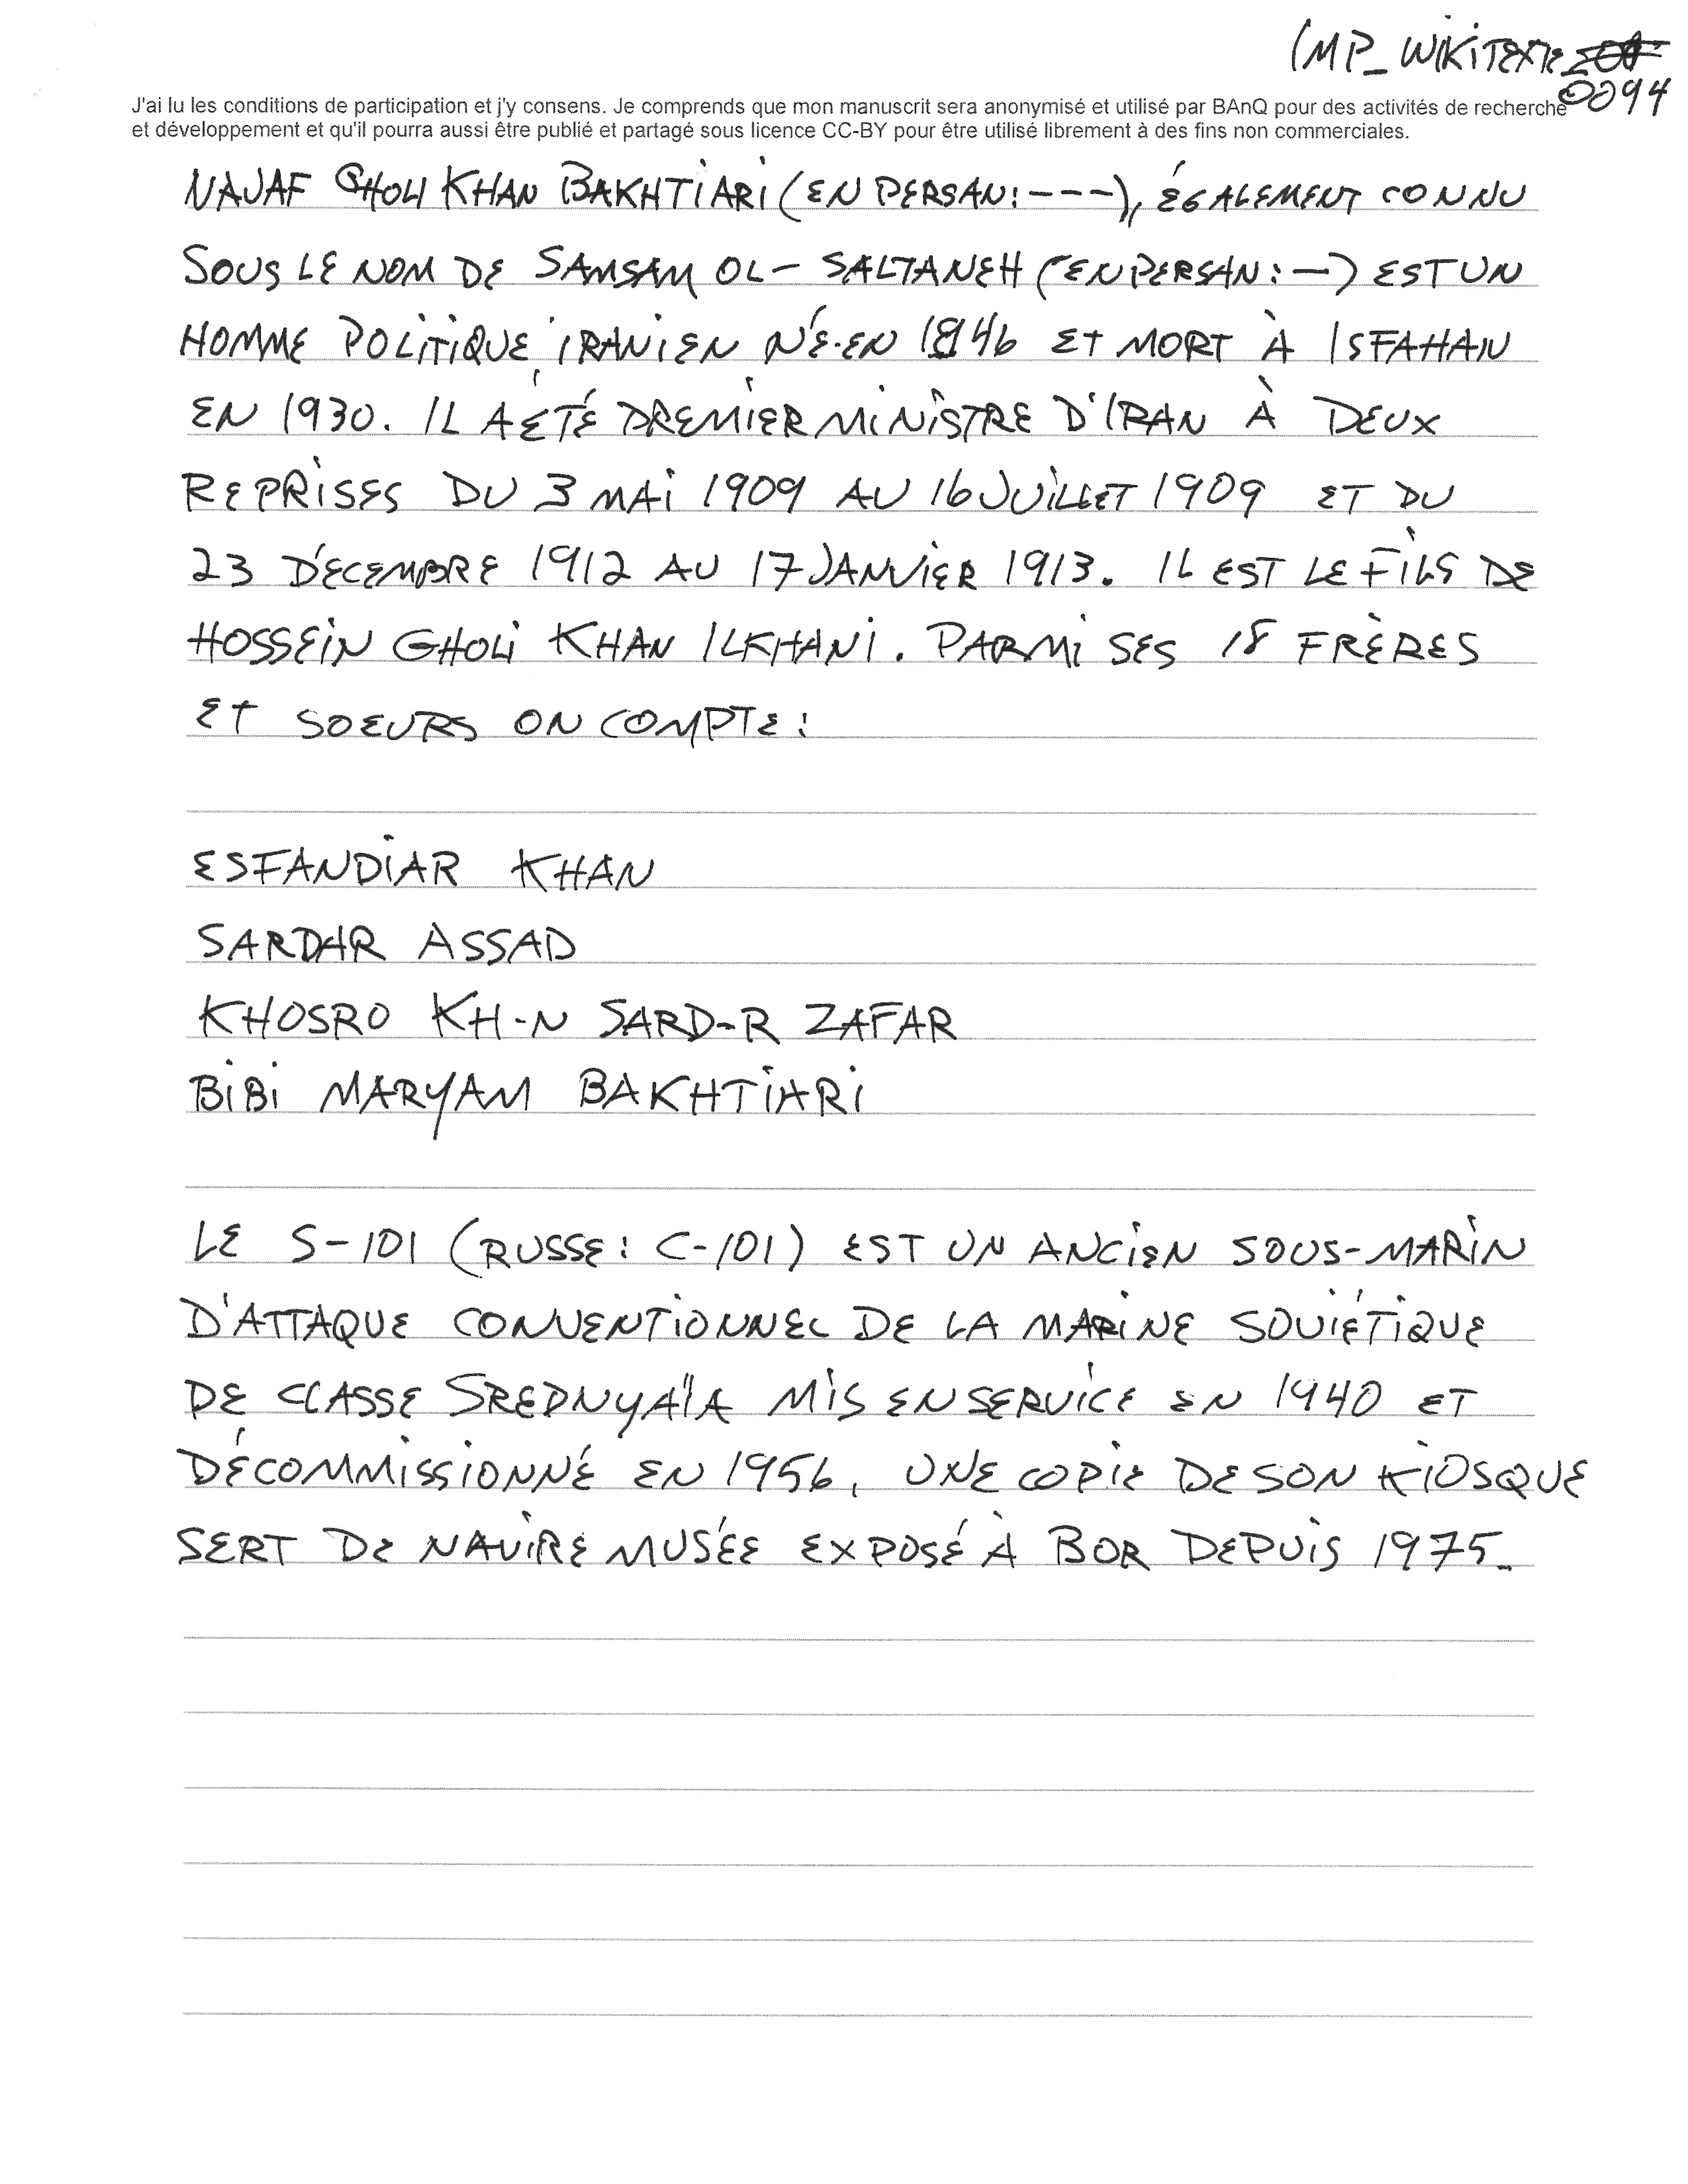 IMP_WIKITEXTE
0094
J'ai lu les conditions de participation et j'y consens. Je comprends que mon manuscrit sera anonymisé et utilisé par BAnQ pour des activités de recherche
et développement et qu'il pourra aussi être publié et partagé sous licence CC-BY pour être utilisé librement à des fins non commerciales.
NAJAF GHOLI KHAN BAKHTIARI (EN PERSAN: ---), ÉGALEMENT CONNU
SOUS LE NOM DE SAMSAM OL- SALTANEH (EN PERSAN: -) EST UN
HOMME POLITIQUE IRANIEN NÉ EN 1846 ET MORT À ISFAHAN
EN 1930. IL A ÉTÉ PREMIER MINISTRE D'IRAN À DEUX
REPRISES DU 3 MAI 1909 AU 16 JUILLET 1909 ET DU
23 DÉCEMBRE 1912 AU 17 JANVIER 1913. IL EST LE FILS DE
HOSSEIN GHOLI KHAN ILKHANI. PARMI SES 18 FRÈRES
ET SOEURS ON COMPTE:
ESFANDIAR KHAN
SARDAR ASSAD
KHOSRO KH-N SARD-R ZAFAR
BIBI MARYAM BAKHTIARI
LE S-101 (RUSSE: C-101) EST UN ANCIEN SOUS-MARIN
D'ATTAQUE CONVENTIONNEL DE LA MARINE SOVIÉTIQUE
DE CLASSE SREDNYAÏA MIS EN SERVICE EN 1940 ET
DÉCOMMISSIONNÉ EN 1956, UNE COPIE DE SON KIOSQUE
SERT DE NAVIRE MUSÉE EXPOSÉ À BOR DEPUIS 1975.